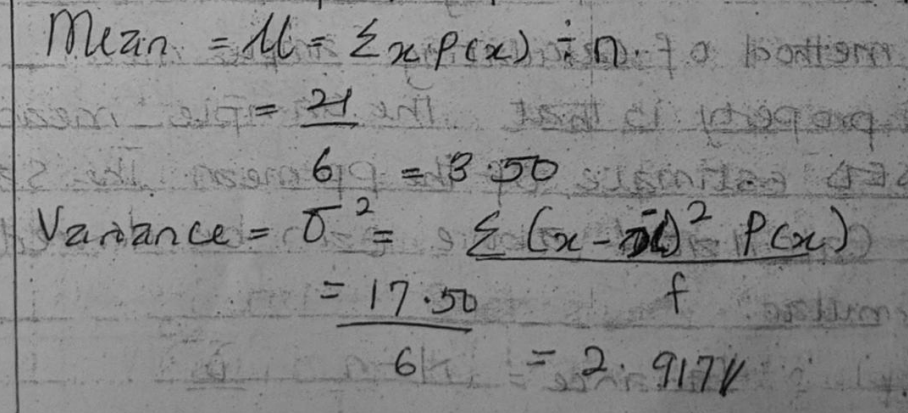 Mean = μ = Σx P(x) ÷ n.
= 21
6 = 3.50
Variance = σ² = Σ(x - x̄)² P(x)
= 17.50 f
6 = 2.917